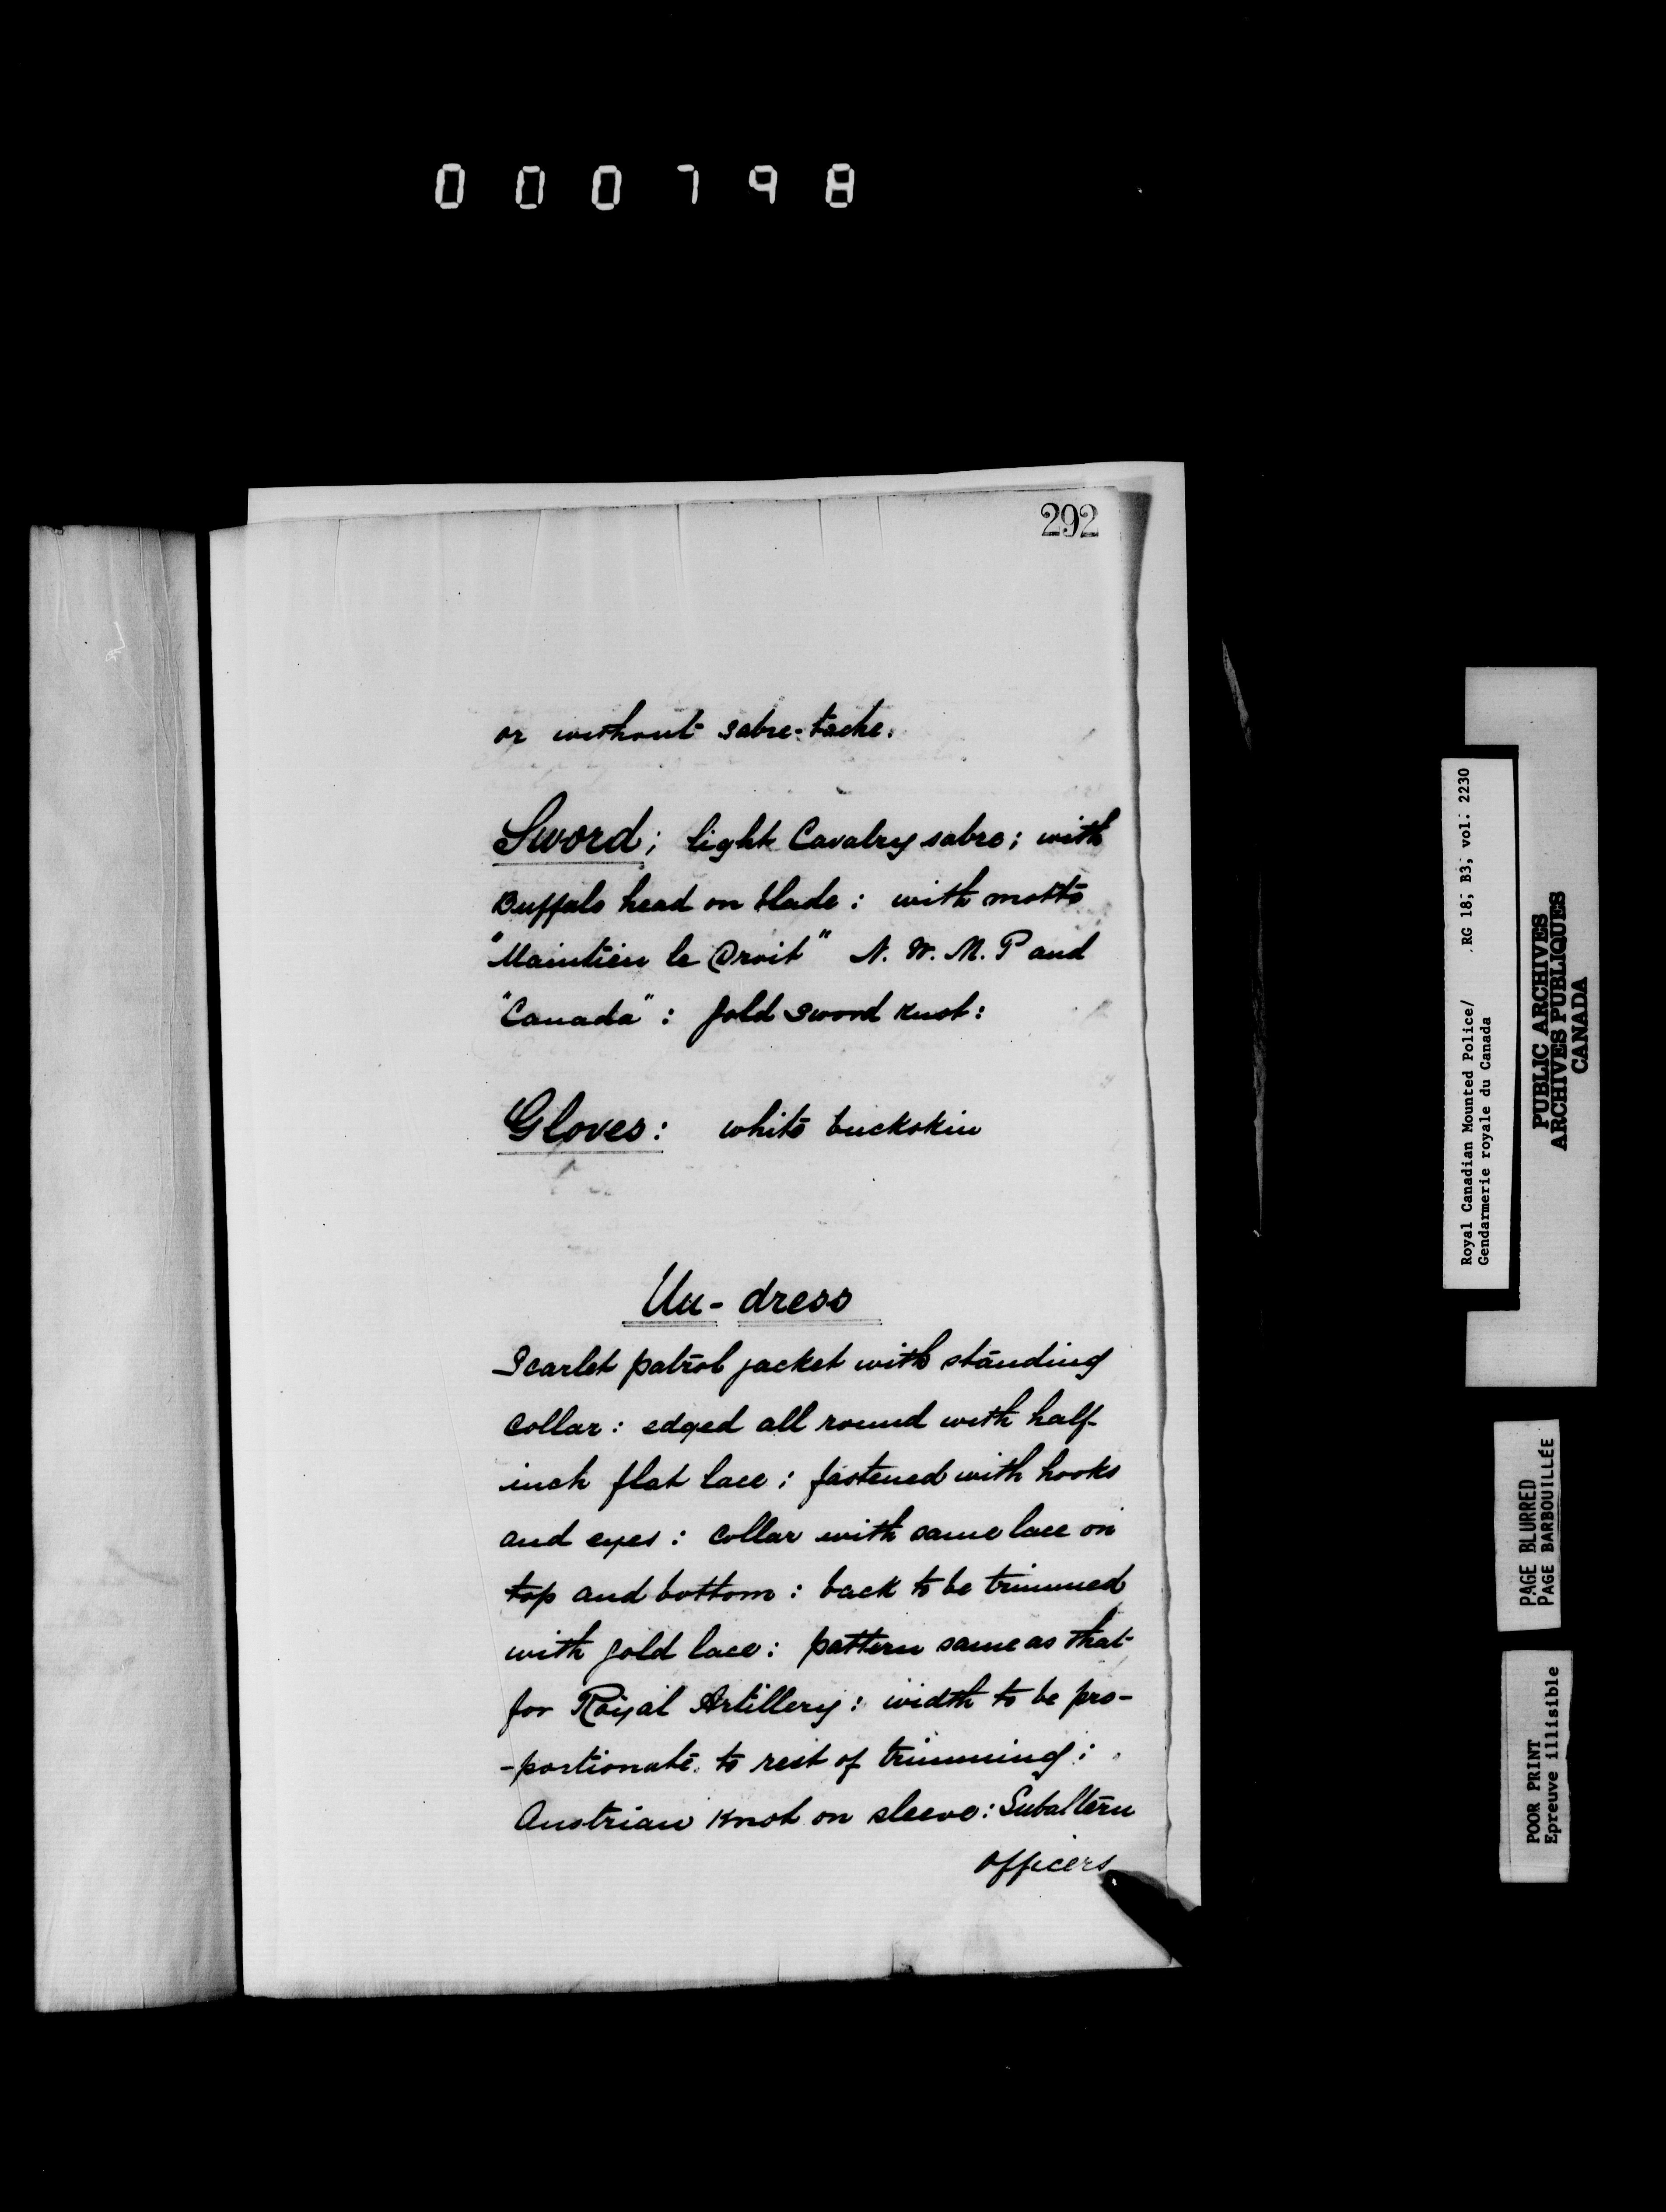 000798
292
or without sabre-tache.
Sword; light Cavalry sabre; with
Buffalo head on blade: with motto
"Maintien le Droit" N. W. M. P and
"Canada": gold sword knot:
Gloves: white buckskin
Un-dress
Scarlet patrol jacket with standing
collar: edged all round with half-
inch flat lace; fastened with hooks
and eyes: collar with same lace on
top and bottom: back to be trimmed
with gold lace: pattern same as that
for Royal Artillery: width to be pro-
-portionate to rest of trimming:
Austrian knot on sleeve: Subaltern
officers
Royal Canadian Mounted Police/ RG 18, B3, vol. 2230
Gendarmerie royale du Canada
PUBLIC ARCHIVES
ARCHIVES PUBLIQUES
CANADA
PAGE BLURRED
PAGE BARBOUILLÉE
POOR PRINT
Epreuve illisible